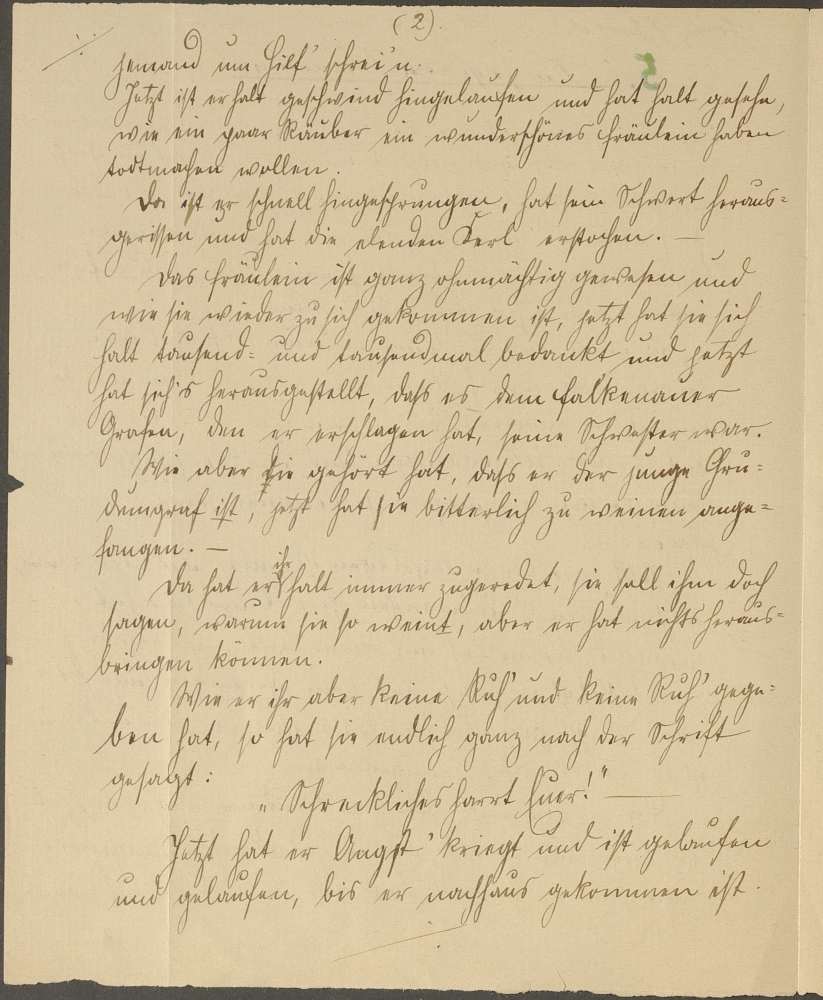 (2).
jemand um Hilf' schrei'n.
Jetzt ist er halt geschwind hingelaufen und hat halt gesehn,
wie ein paar Räuber ein wunderschönes Fräulein haben
todtmachen wollen.
Da ist er schnell hingesprungen, hat sein Schwert heraus=
gerissen und hat die elenden Kerl erstochen. —
Das Fräulein ist ganz ohnmächtig gewesen und
wie sie wieder zu sich gekommen ist, jetzt hat sie sich
halt tausend= und tausendmal bedankt und jetzt
hat sich's herausgestellt, dass es dem Falkenauer
Grafen, den er erschlagen hat, seine Schwester war.
Wie aber die gehört hat, dass er der junge Gru=
dumgraf ist, jetzt hat sie bitterlich zu weinen ange=
fangen. —
Da hat er ihr halt immer zugeredet, sie soll ihm doch
sagen, warum sie so weint, aber er hat nichts heraus=
bringen können.
Wie er ihr aber keine Ruh' und keine Ruh' gege=
ben hat, so hat sie endlich ganz nach der Schrift
gesagt:
„Schreckliches harrt Euer!" —
Jetzt hat er Angst 'kriegt und ist gelaufen
und gelaufen, bis er nachhaus gekommen ist.